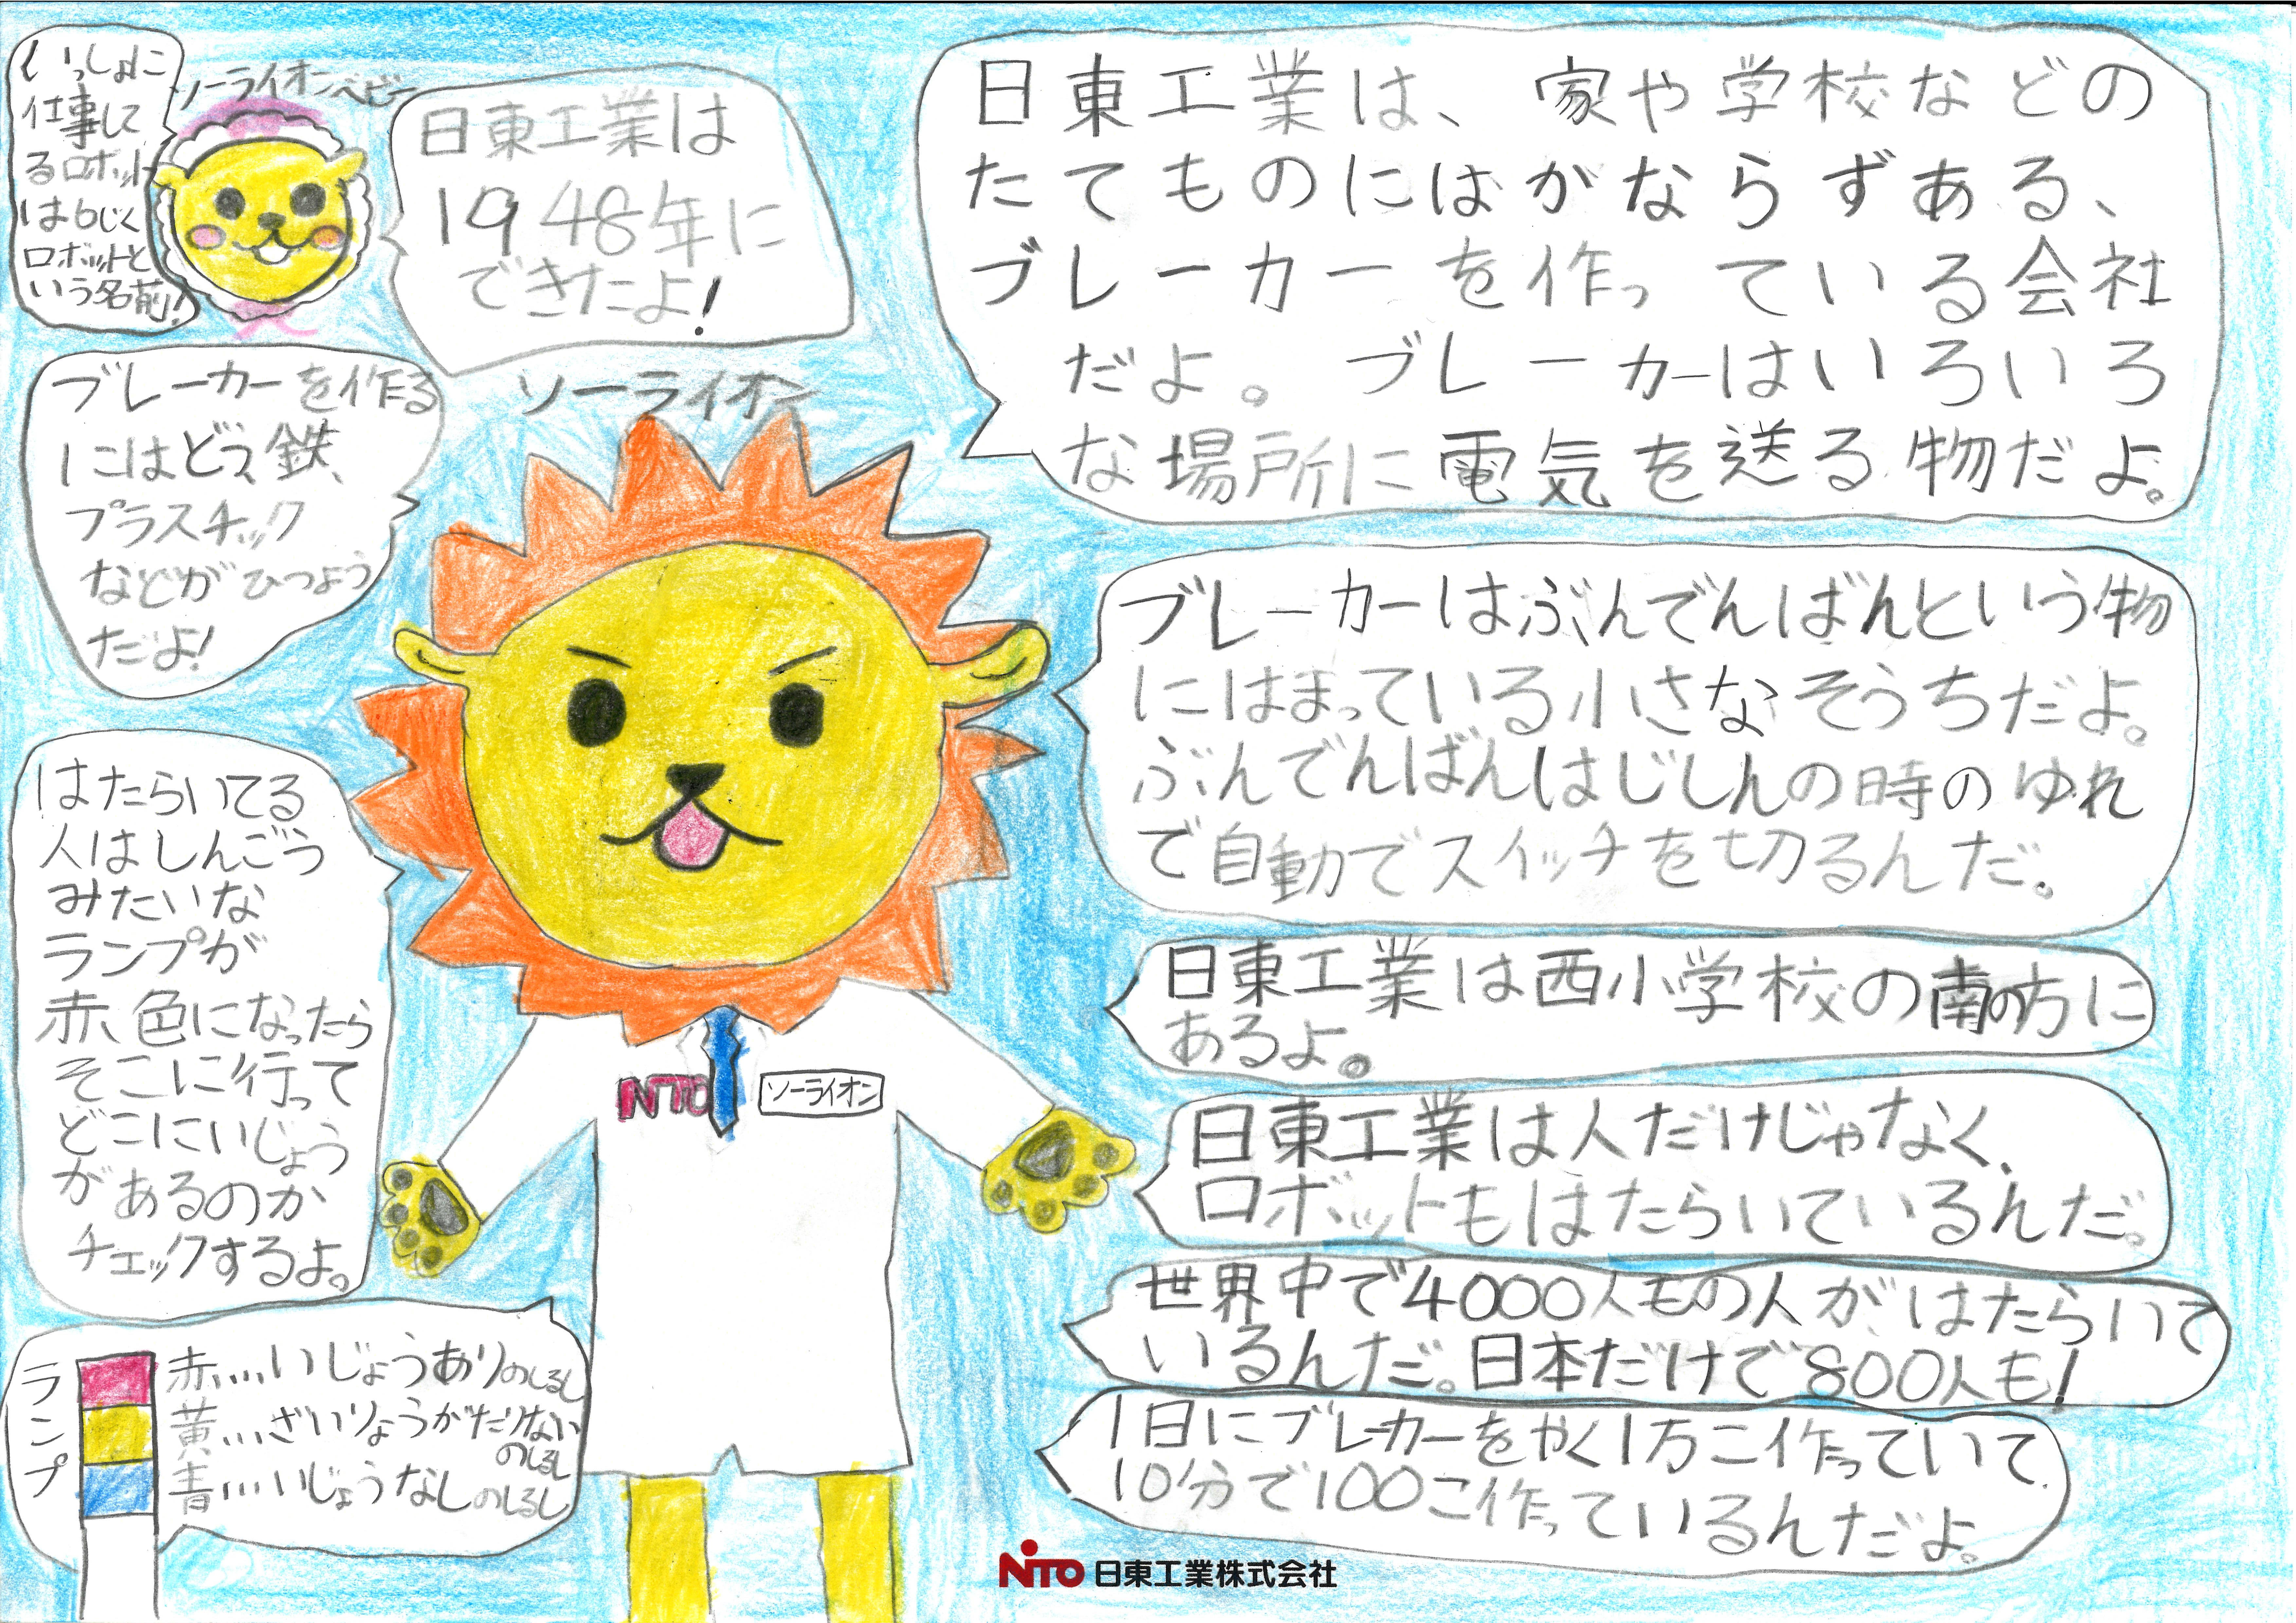 いっしょに
仕事して
るロボット
は6じく
ロボットと
いう名前!
ソーライオンベビー
日東工業は
1948年に
できたよ!
日東工業は、家や学校などの
たてものにはがならずある、
ブレーカーを作っている会社
だよ。ブレーカーはいろいろ
な場所に電気を送る物だよ。
ブレーカーを作る
にはどう、鉄、
プラスチック
などがひつよう
だよ!
ソーライオン
ブレーカーはぶんでんばんという物
にはまっている小さなそうちだよ。
ぶんでんばんはじしんの時のゆれ
で自動でスイッチを切るんだ。
はたらいてる
人はしんごう
みたいな
ランプが
赤色になったら
そこに行って
どこにいじょう
があるのか
チェックするよ。
日東工業は西小学校の南の方に
あるよ。
NITO
ソーライオン
日東工業は人だけじゃなく、
ロボットもはたらいているんだ。
世界中で4000人もの人が、はたらいて
いるんだ。日本だけで800人も!
ランプ
赤...いじょうありのしるし
黄...ざいりょうがたりない
のしるし
青...いじょうなしのしるし
1日にブレーカーをやく1万こ作っていて
10分で100こ作っているんだよ。
NITO 日東工業株式会社